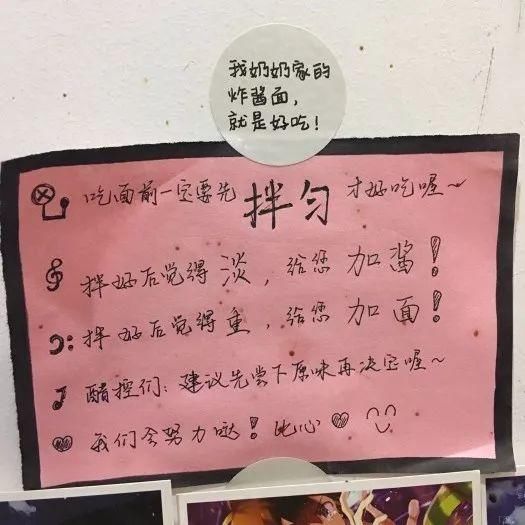 我奶奶家的
炸酱面，
就是好吃！
吃面前一定要先 拌匀 才好吃喔～
拌好后觉得淡，给您 加酱！
拌好后觉得重，给您 加面！
醋控们：建议先尝下原味再决定喔～
我们会努力哒！比心♡